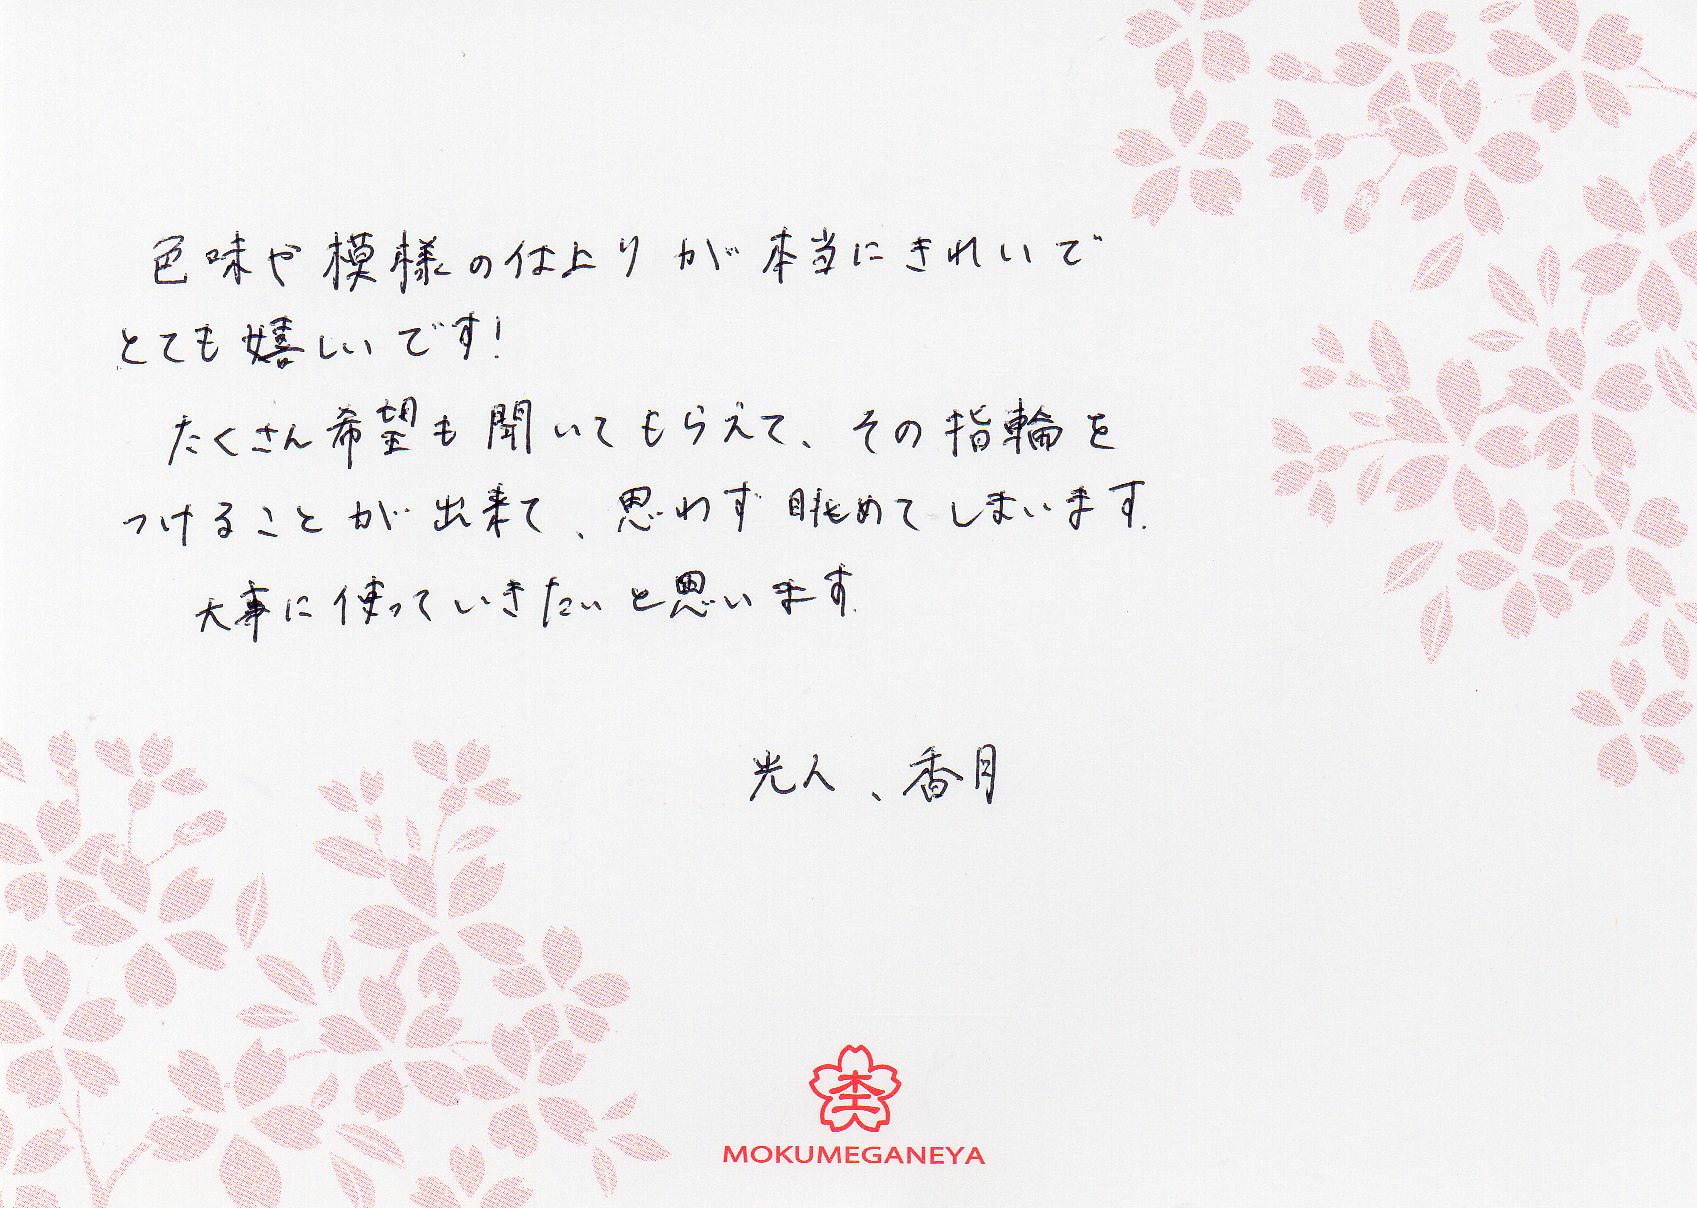 色味や模様の仕上りが本当にきれいで
とても嬉しいです!
たくさん希望も聞いてもらえて、その指輪を
つけることが出来て、思わず眺めてしまいます.
大事に使っていきたいと思います.
光人、香月
MOKUMEGANEYA